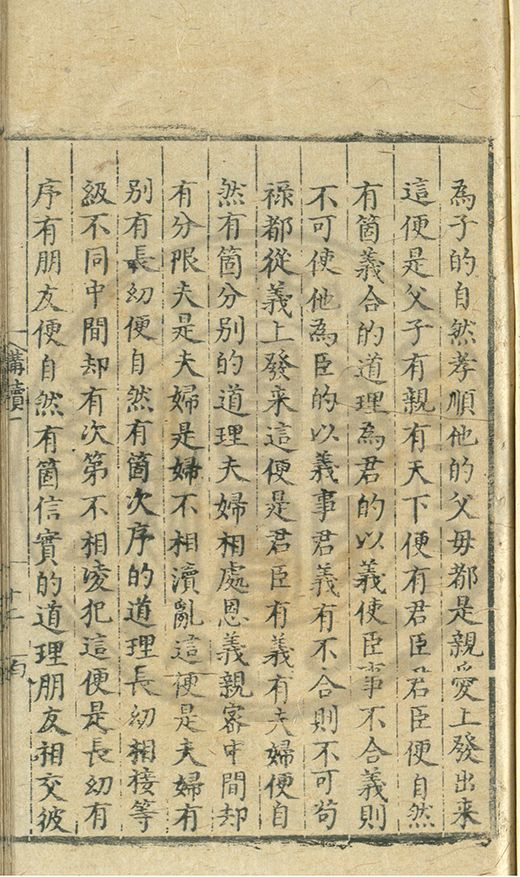 為子的自然孝順他的父母都是親愛上發出来
這便是父子有親有天下便有君臣君臣便自然
有箇義合的道理為君的以義使臣事不合義則
不可使他為臣的以義事君義有不合則不可苟
祿都從義上發来這便是君臣有義有夫婦便自
然有箇分别的道理夫婦相處恩義親宻中間却
有分限夫是夫婦是婦不相瀆亂這便是夫婦有
别有長幼便自然有箇次序的道理長幼相接等
級不同中間却有次第不相凌犯這便是長幼有
序有朋友便自然有箇信實的道理朋友相交彼
講讀
十二